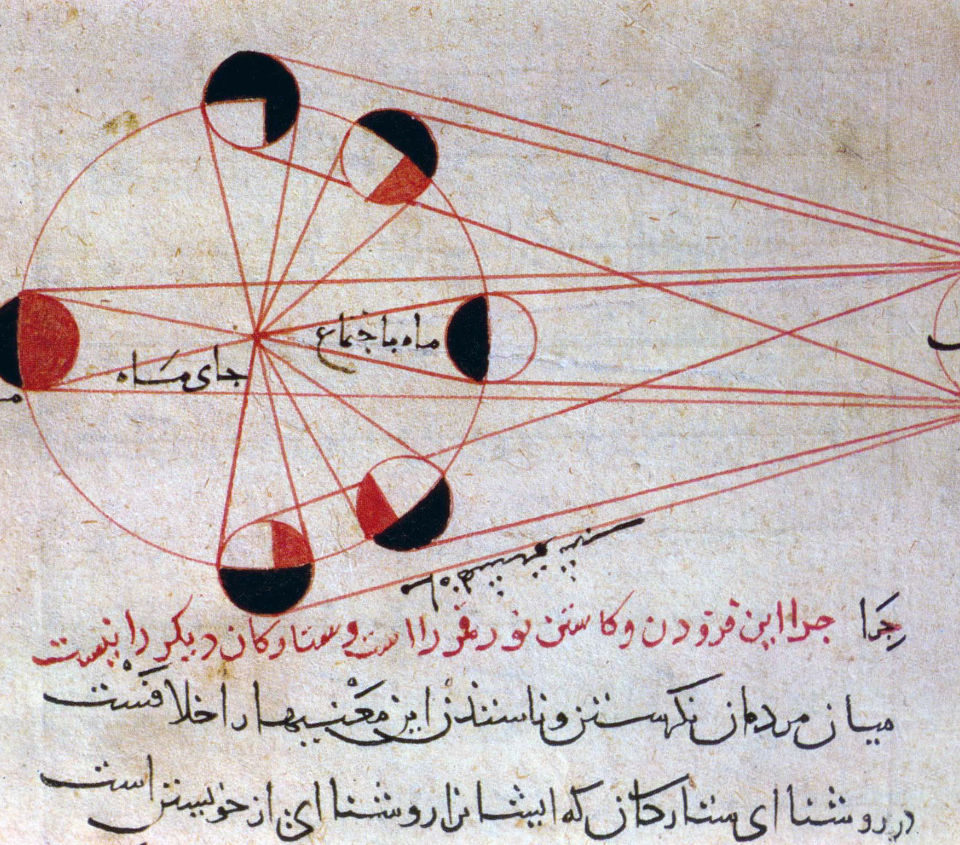 ماه باجتماع
جای ماه
چرا چرا این فزودن و کاستن نور قمر را است و ستارکان دیکر را نیست
میان مردمان نکرستن این معنیها را خلافست
در روشنا ای ستارکان که ایشانرا روشنا ای از خویشتن است